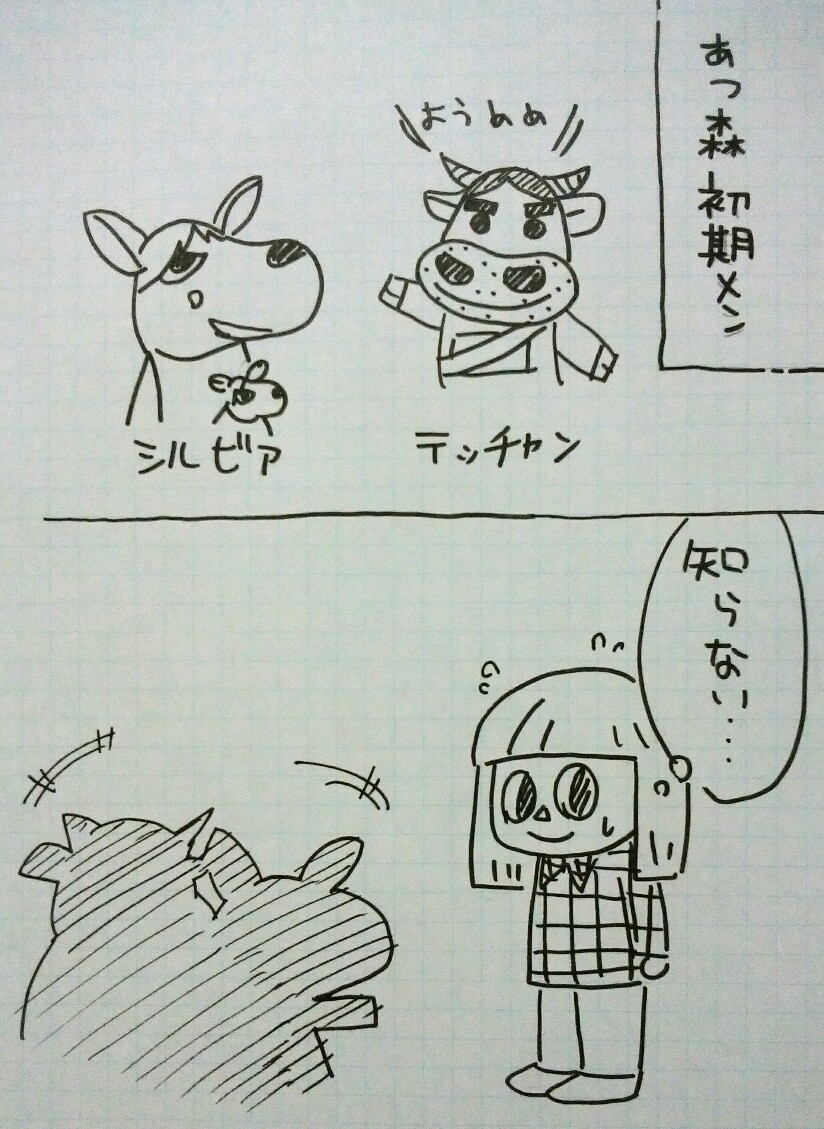 あつ森初期メン
ようめめ
テッチャン
シルビア
知らない…